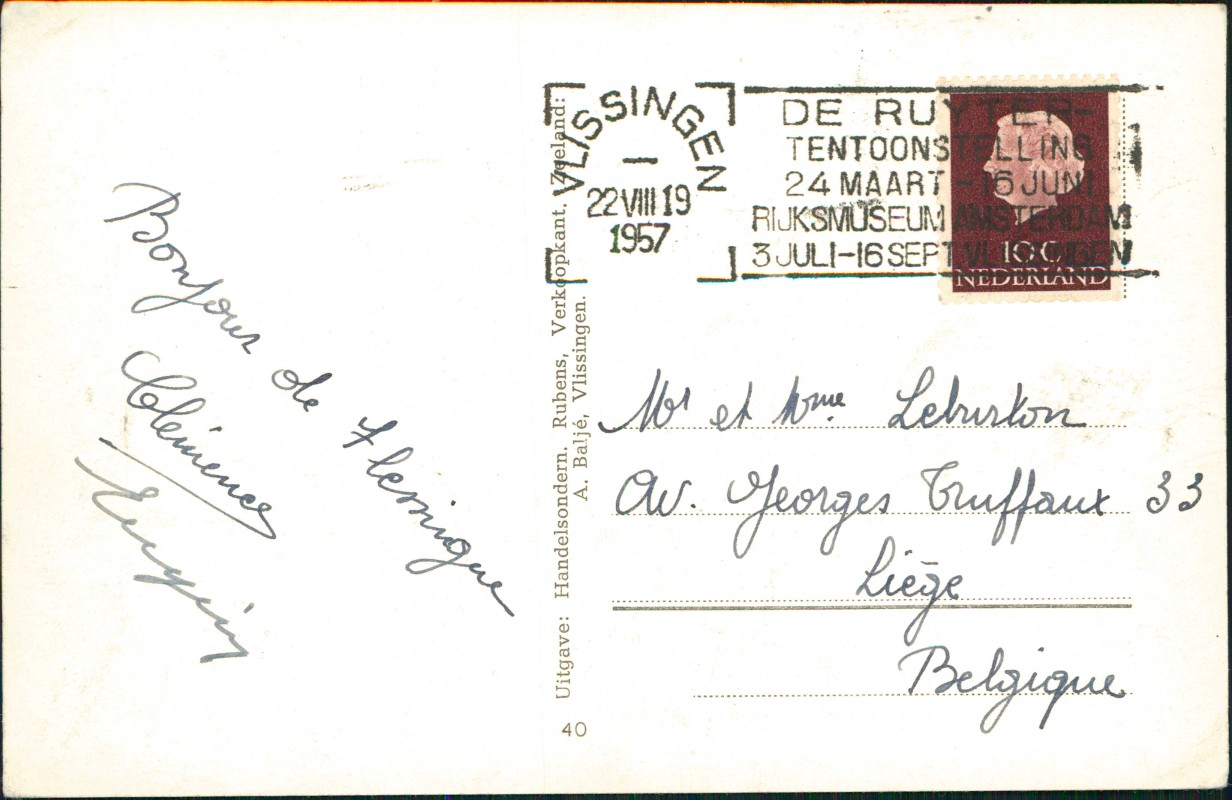 Bonjour de Flessingue
Clémence
Uitgave: Handelsondern. Rubens, Verkoopkant. Zeeland:
A. Baljé, Vlissingen.
40
VLISSINGEN
22 VIII 19
1957
DE RUYTER-
TENTOONSTELLING
24 MAART - 16 JUNI
RIJKSMUSEUM AMSTERDAM
3 JULI-16 SEPT. VLISSINGEN
10 c
NEDERLAND
Mr et Mme Leburton
Av. Georges Truffaux 33
Liège
Belgique